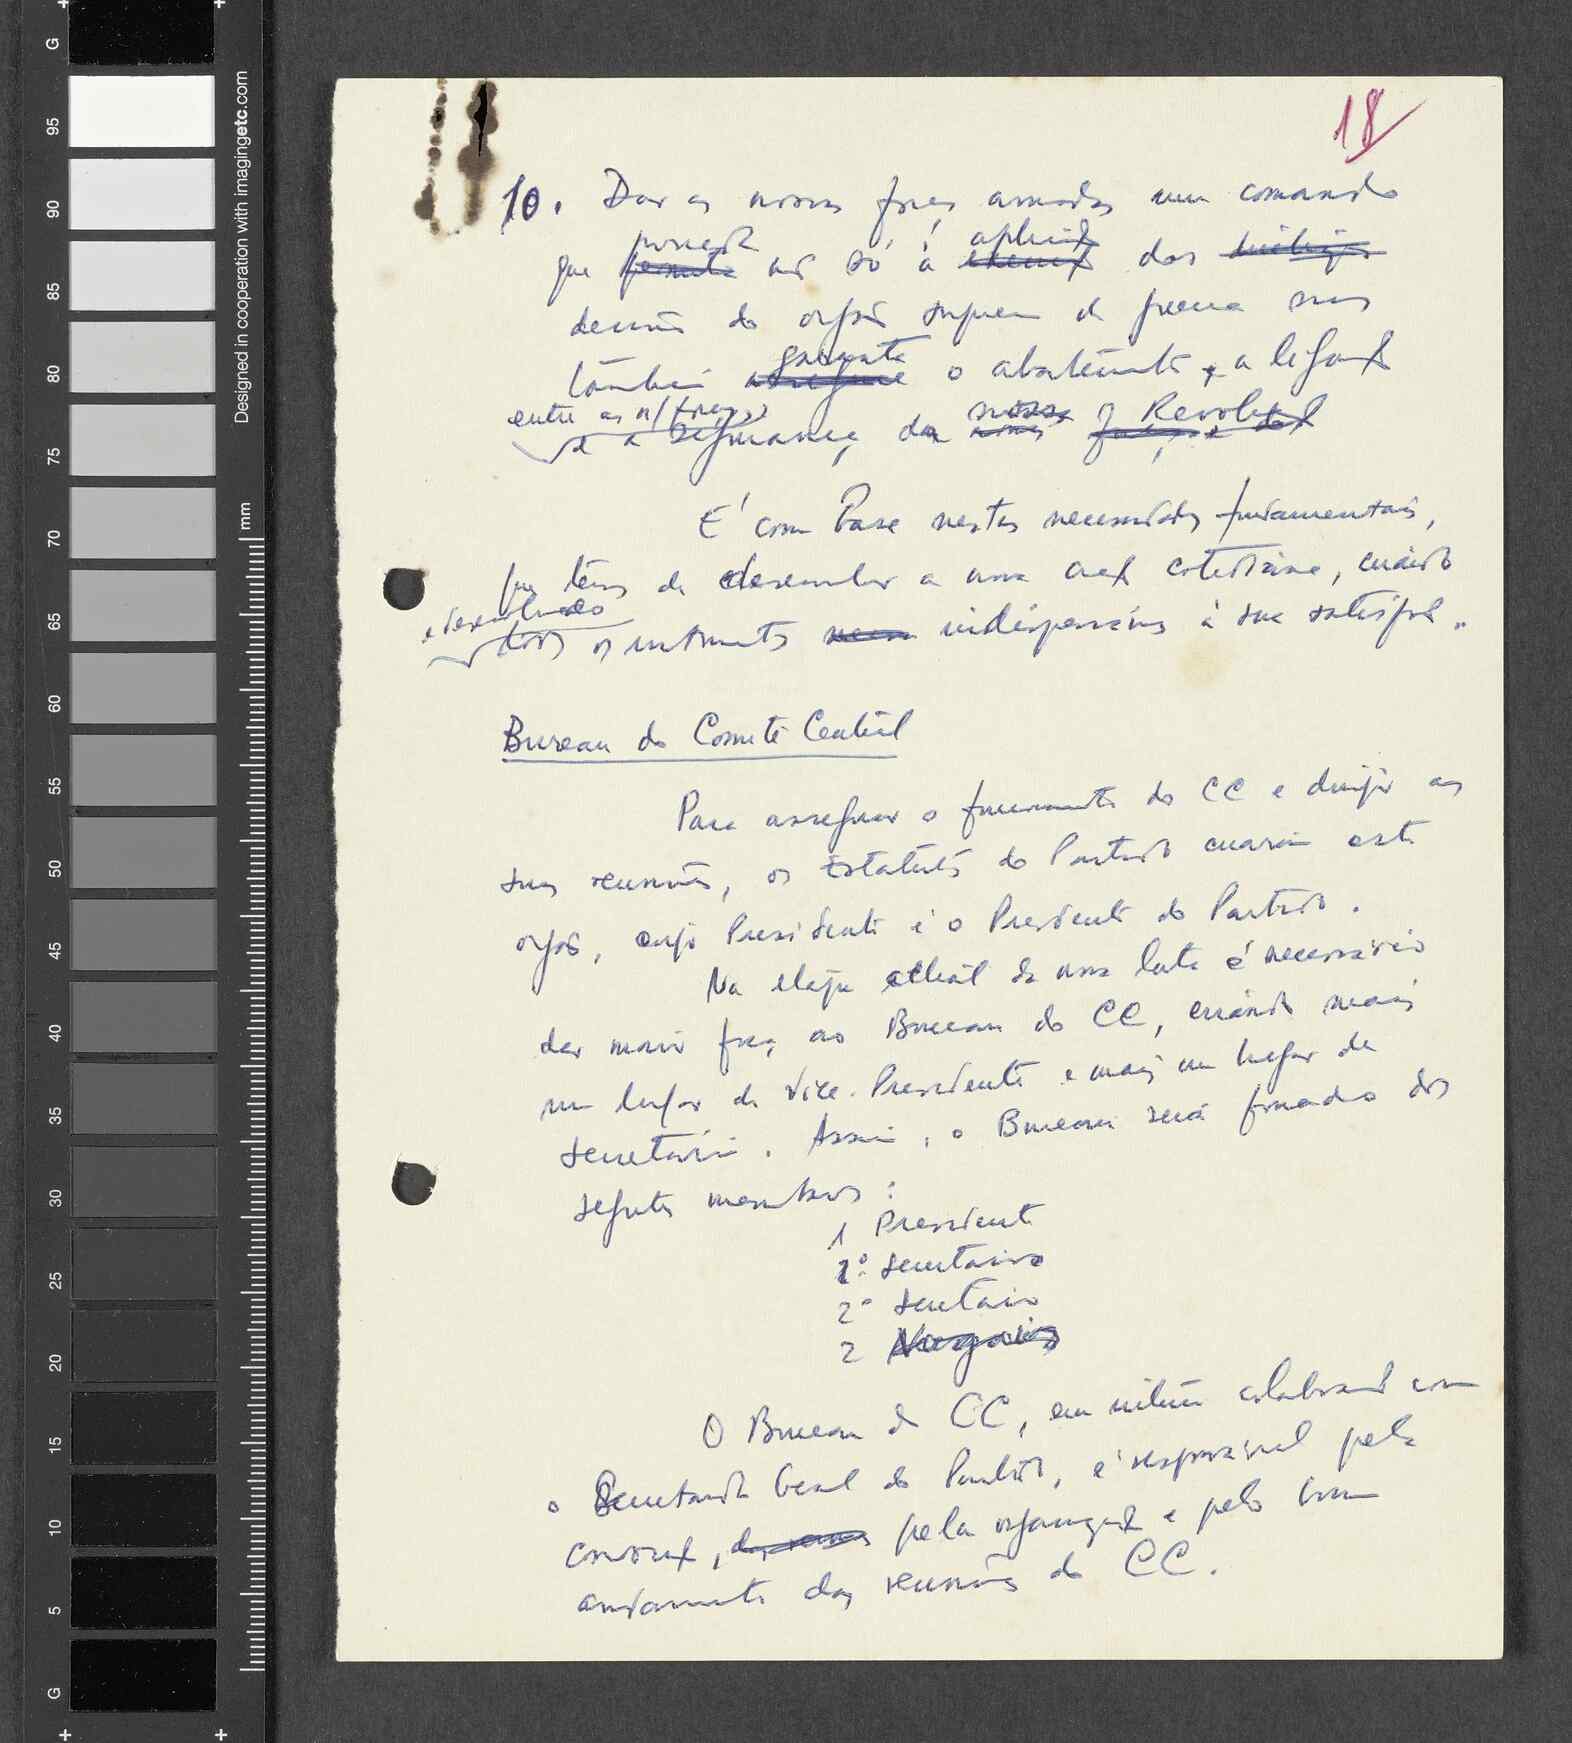 18
10. Dar às nossas forças armadas um comando
que permita não só a aplicação das
decisões do orgão superior da guerra mas
também garanta o abastecimento, a ligação
entre as n/forças
e a segurança, da nossa Revolução
É com base nestas necessidades fundamentais,
que temos de desenvolver a nossa acção cotidiana, criando
e desenvolvendo
todos os instrumentos indispensáveis à sua satisfação.
Bureau do Comité Central
Para assegurar o funcionamento do CC e dirigir as
suas reuniões, os Estatutos do Partido criaram este
orgão, cujo Presidente é o Presidente do Partido.
Na etapa actual da nossa luta é necessário
dar maior força ao Bureau do CC, criando mais
um lugar de Vice-Presidente e mais um lugar de
Secretário. Assim, o Bureau será formado dos
seguintes membros:
1 Presidente
1º Secretário
2º Secretário
2 Vogais
O Bureau do CC, em íntima colaboração com
o Secretariado Geral do Partido, é responsável pela
convocação, pela organização e pelo bom
andamento das reuniões do CC.
Designed in cooperation with imagingetc.com
mm
G
95
90
85
80
75
70
65
60
55
50
45
40
35
30
25
20
15
10
5
G